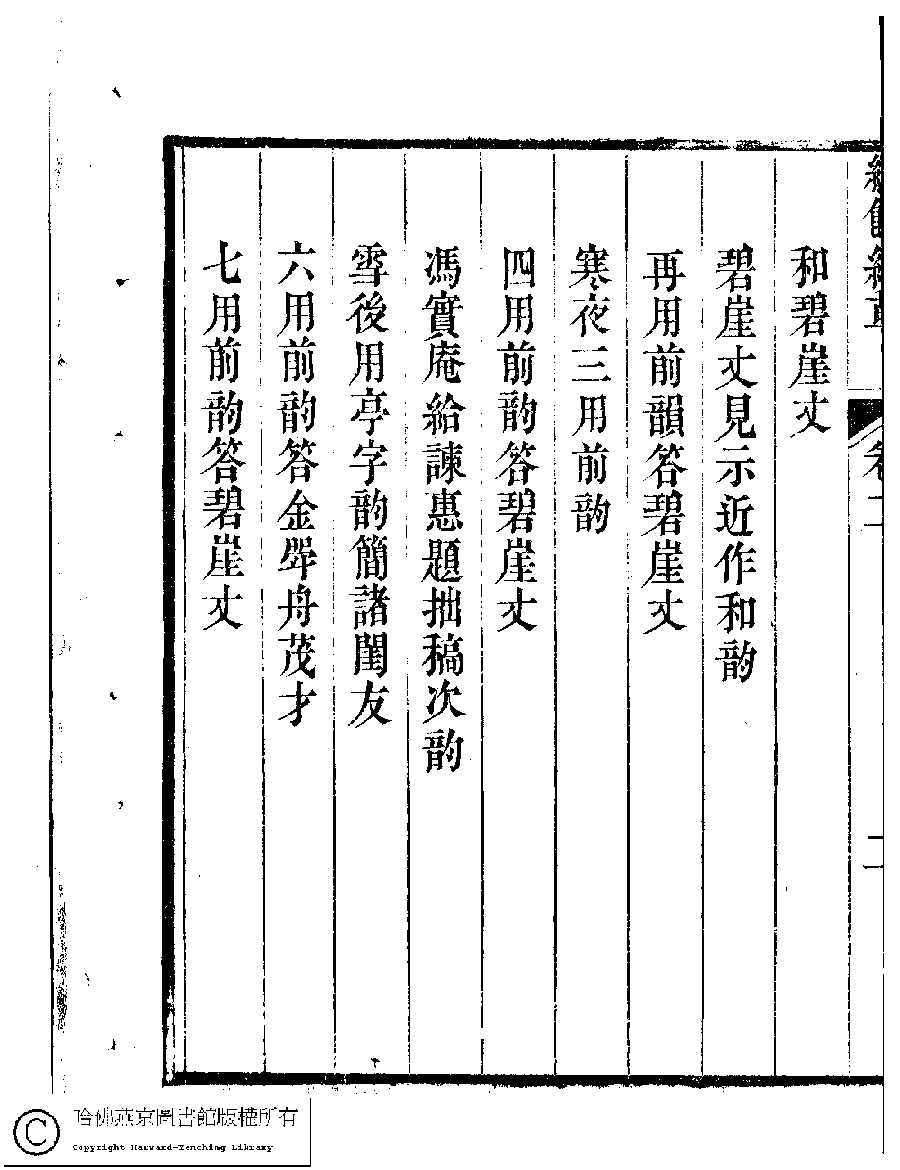 和碧崖丈
碧崖丈見示近作和韵
再用前韻答碧崖丈
寒夜三用前韵
四用前韵答碧崖丈
馮實庵給諫惠題拙稿次韵
雪後用亭字韵簡諸閨友
六用前韵答金犀舟茂才
七用前韵答碧崖丈
卷二
二
哈佛燕京圖書館版權所有
Copyright Harvard-Yenching Library